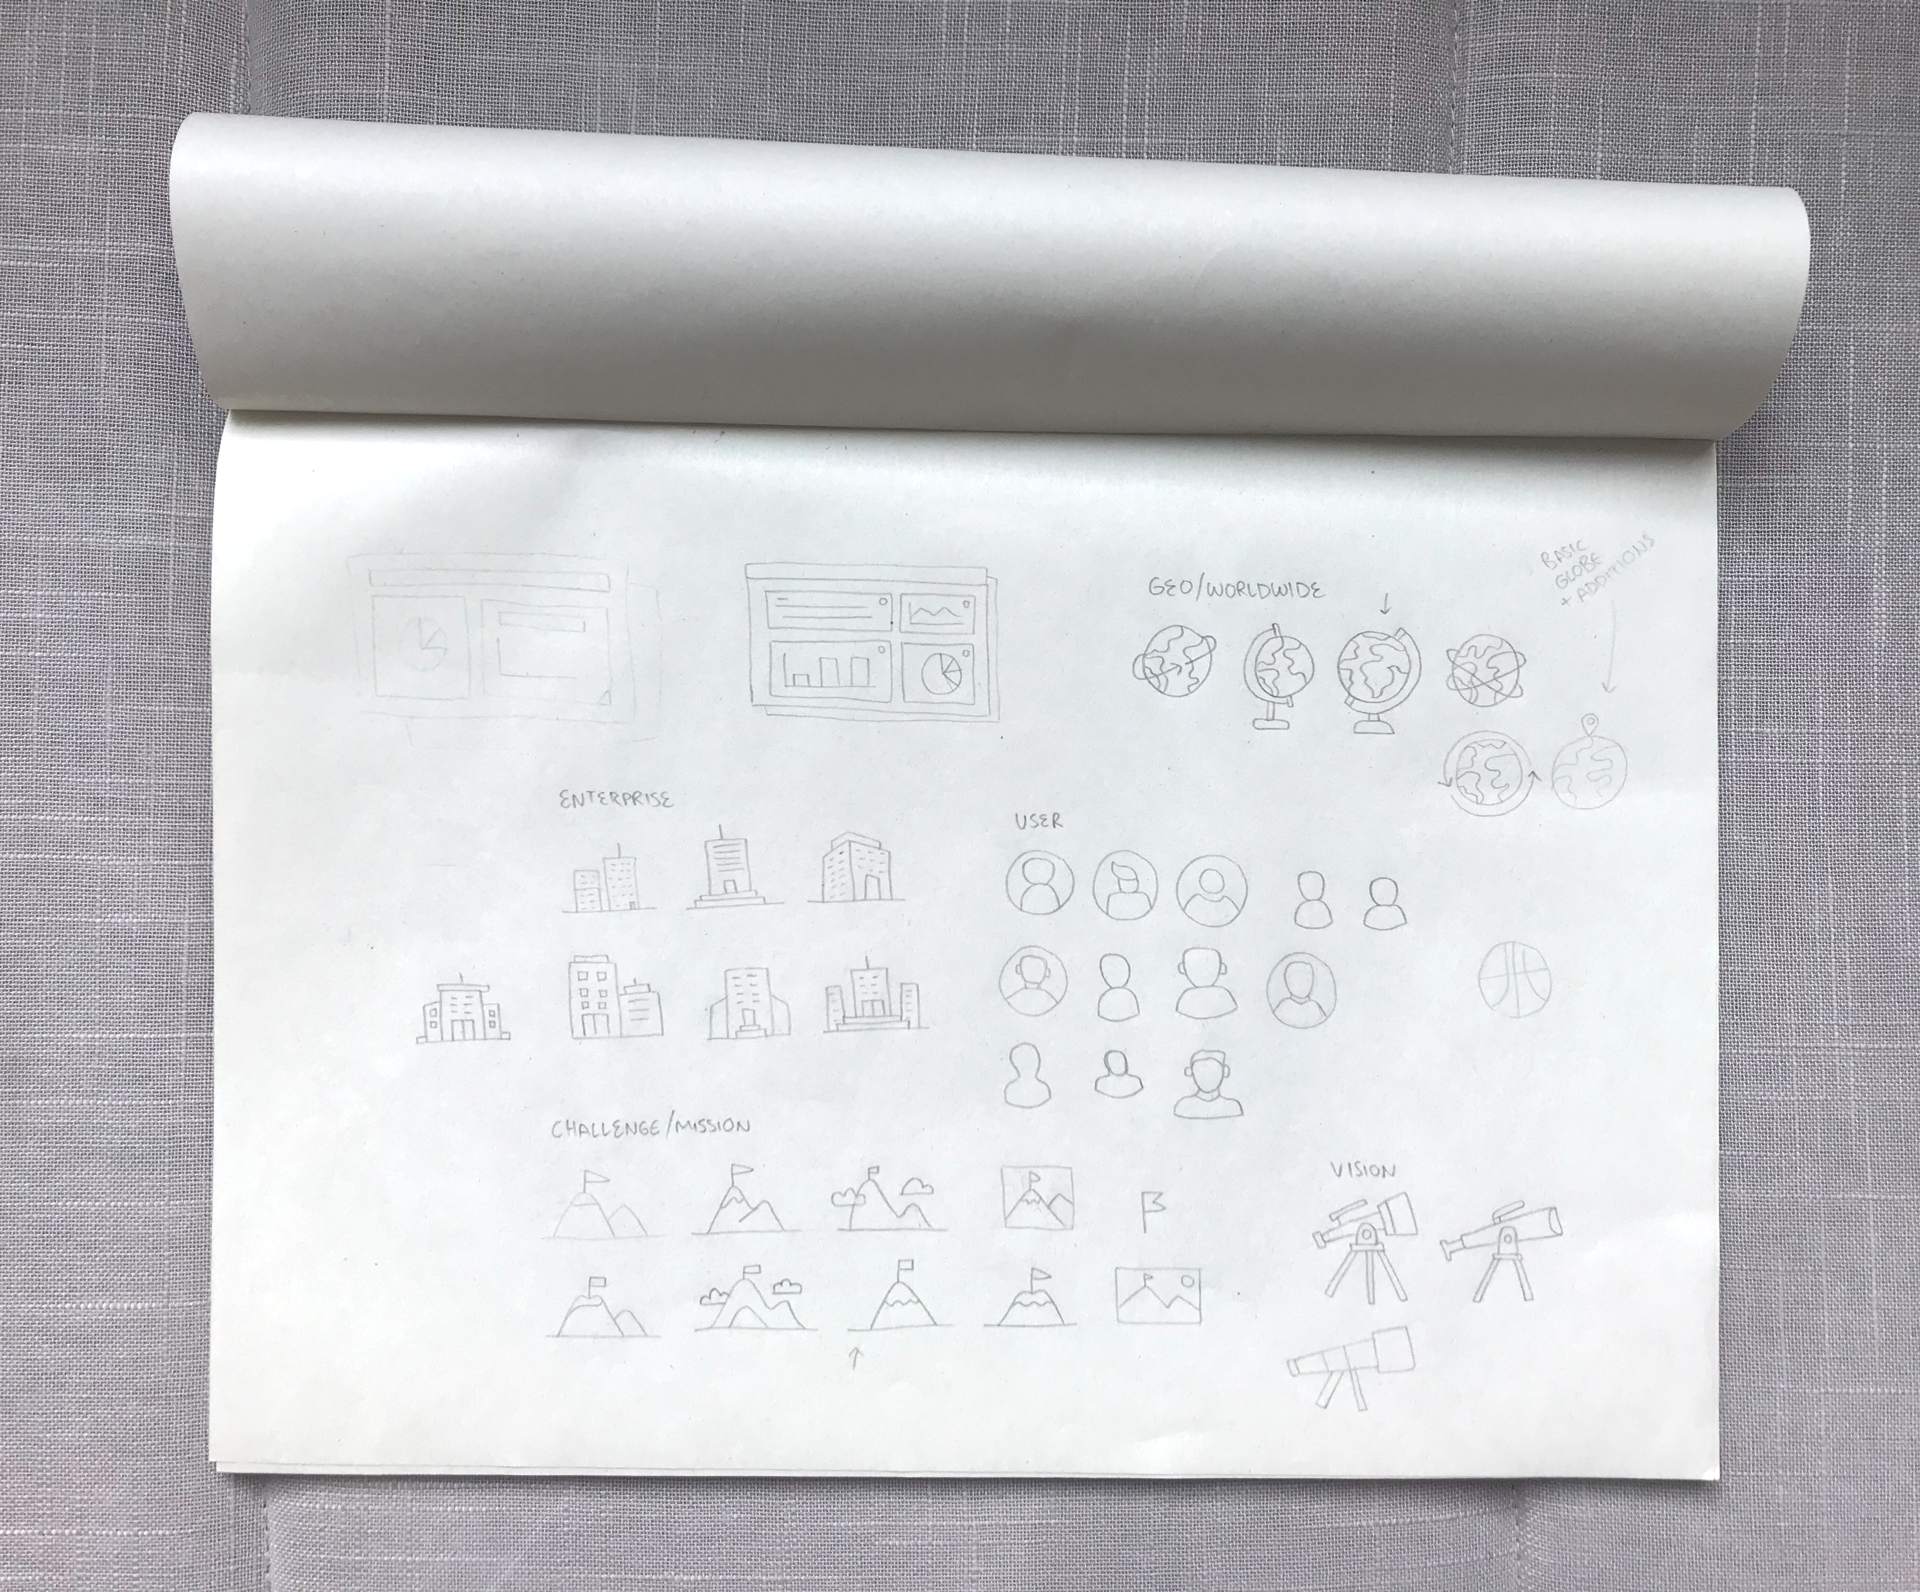 GEO/WORLDWIDE
BASIC
GLOBE
+ ADDITIONS
ENTERPRISE
USER
CHALLENGE/MISSION
VISION